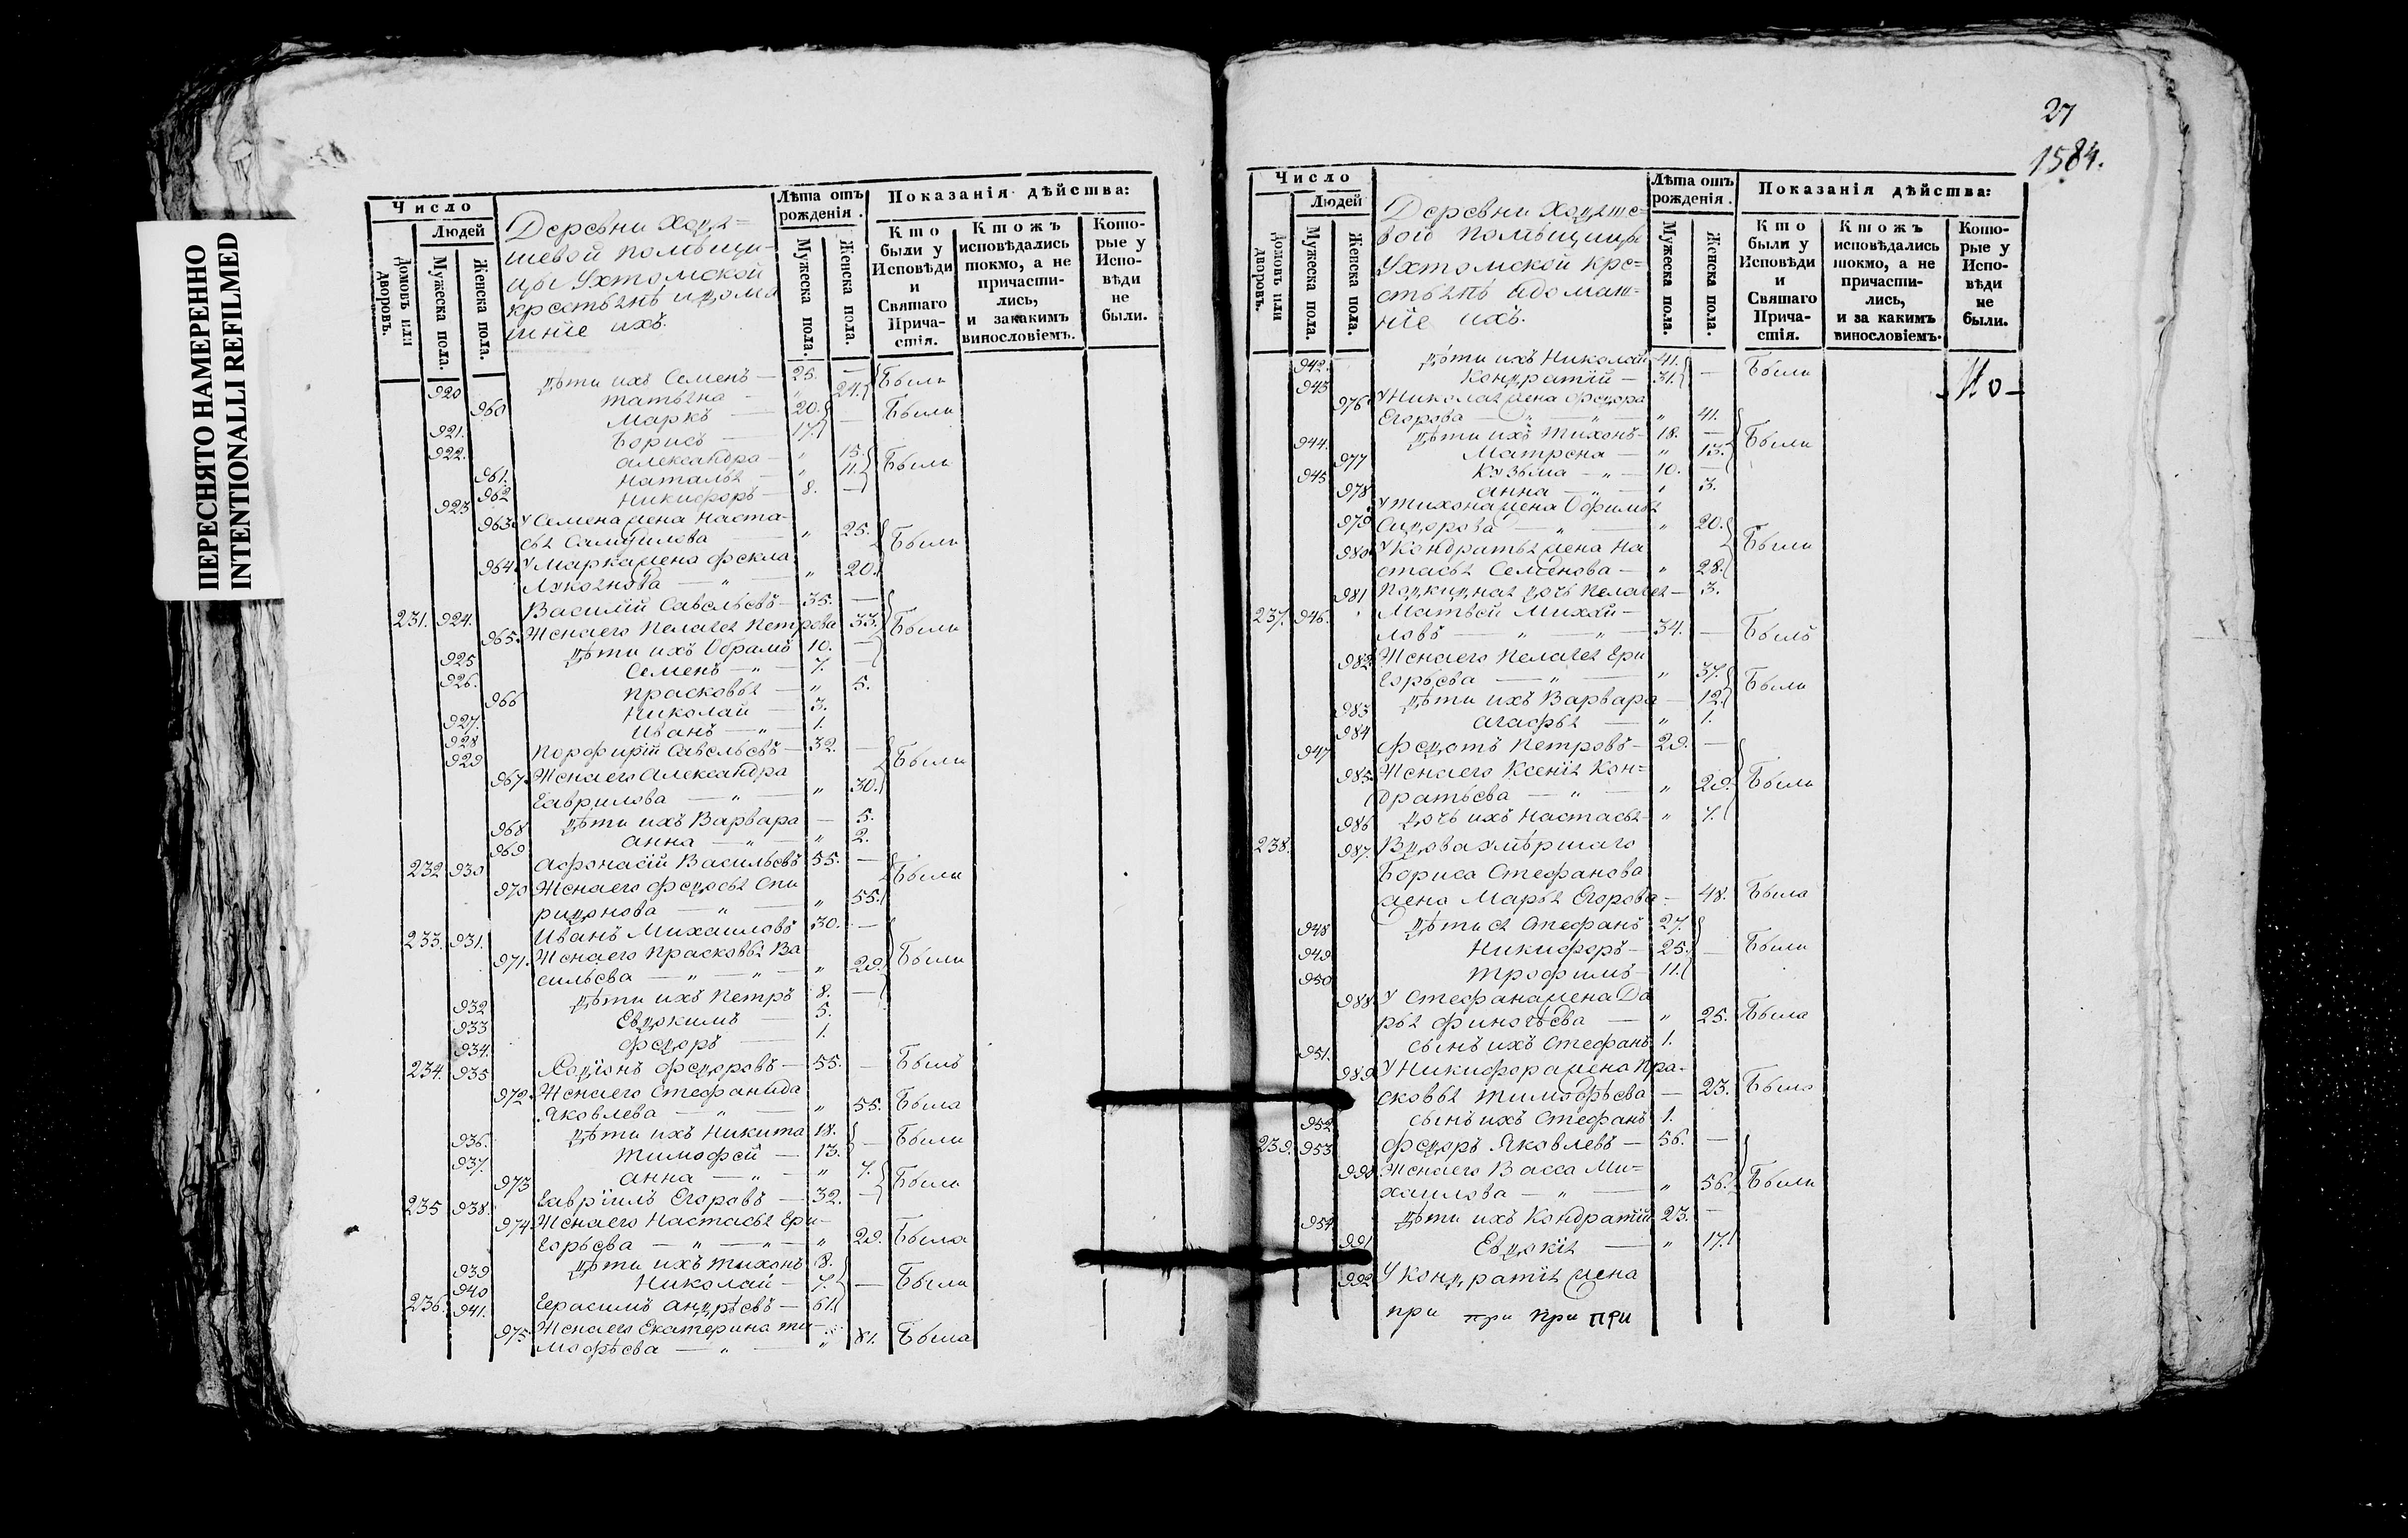 ПЕРЕСНЯТО НАМЕРЕННО
INTENTIONALLI REFILMED
Число
Людей
Домовъ или дворовъ.
Мужеска пола.
Женска пола.
Деревни Ходя=
шевой помѣщи-
цы Ухтомской
крестьянъ и дома
шніе ихъ.
Лѣта отъ рожденія.
Мужеска пола.
Женска пола.
Показанія дѣйства:
Кто были у Исповѣди и Святаго Причастія.
Ктожъ исповѣдались токмо, а не причастились, и закакимъ винословіемъ.
Которые у Исповѣди не были.
920 дѣти ихъ Семенъ — 25. — Были
960 Татьяна — 24.
921. Маркъ — 20. — Были
922. Борисъ — 17.
961. Александра — " 15. Были
962 Наталья — " 11.
923 Никифоръ — 8. —
963. У Семена жена Наста-
сья Самуилова — " 25. Были
964. У Марка жена Фекла
Лукоянова — " — " 20.
231. 924. Василій Савельевъ — 35. —
965. Жена его Пелагея Петрова 33. Были
925 дѣти ихъ Обрамъ 10. —
926. Семенъ — " — 7. —
966 Прасковья — " 5.
927. Николай — 3.
928 Иванъ — " — 1.
929 Порфирій Савельевъ — 32. — Были
967. Жена его Александра
Гаврилова — " — " 30.
968 дѣти ихъ Варвара — 5.
969 Анна — " — " 2.
232 930 Афонасій Васильевъ 55. — Были
970 Жена его Федосья Спи
ридонова — " — " 55.
233. 931. Иванъ Михаиловъ 30. —
971. Жена его Прасковья Ва
сильева — " — " — " 29. Были
932 дѣти ихъ Петръ 8. —
933 Евдокимъ — 5.
934. Федоръ — 1.
234. 935 Родіонъ Федоровъ — 55. — Былъ
972. Жена его Стефанида
Яковлева — " — " 55. Была
936. дѣти ихъ Никита 18. — Были
937. Тимофей — 13.
973 Анна — " — " 7. Были
235 938. Гавріилъ Егоровъ — 32. —
974. Жена его Настасья Гри-
горьева — " — " — " 29. Была
939 дѣти ихъ Тихонъ 8.
940 Николай — 7. — Были
236. 941. Герасимъ Андрѣевъ — 61.
975. Жена его Екатерина Ти-
мофѣева — " — " 81. Была
27
1584.
Число
Людей
Домовъ или дворовъ.
Мужеска пола.
Женска пола.
Деревни Ходяше=
вой помѣщицы
Ухтомской кре=
стьянъ идомаш=
ніе ихъ.
Лѣта отъ рожденія.
Мужеска пола.
Женска пола.
Показанія дѣйства:
Кто были у Исповѣди и Святаго Причастія.
Ктожъ исповѣдались токмо, а не причастились, и за какимъ винословіемъ.
Которые у Исповѣди не были.
942. дѣти ихъ Николай 41. — Были
943 Кондратій — 31.
976. У Николая жена Федора
Егорова — " — " — " 41.
944. дѣти ихъ Тихонъ — 18. — Были
977 Матрена — " 13.
945 Кузьма — " — 10. —
978 Анна — " — " 3.
979 У Тихона жена Офимья
Сидорова — " — " 20.
980. У Кондратья жена На Были
стасья Семенова — " 28.
981 Подкидная дочь Пелагея — 3.
237. 946. Матвей Михай-
ловъ — " — " — 34. — Былъ
982. Жена его Пелагея Гри
горьева — " — " 37. Были
983 дѣти ихъ Варвара — 12.
984 Агафья — " 1.
947 Федотъ Петровъ — 29. —
985. Жена его Ксенія Кон=
дратьева — " — " 29. Были
986 дочь ихъ Настасья — " 7.
238. 987. Вдова умѣршаго
Бориса Стефанова
жена Марья Егорова — 48. Была
948 дѣти ея Стефанъ 27.
949. Никифоръ — 25. — Были
950 Трофимъ — 11.
988. У Стефана жена Да
рья Финогѣева — " 25. Была
951. сынъ ихъ Стефанъ 1.
989. У Никифора жена Пра-
сковья Тимофѣева — 23. Была
952. сынъ ихъ Стефанъ 1.
239. 953 Федоръ Яковлевъ — 56. —
990 Жена его Васса Ми=
хаилова — " — " 56. Были
954. дѣти ихъ Кондратій 23. —
991 Евдокія — " 17.
992 У Кондратія жена
при при при при